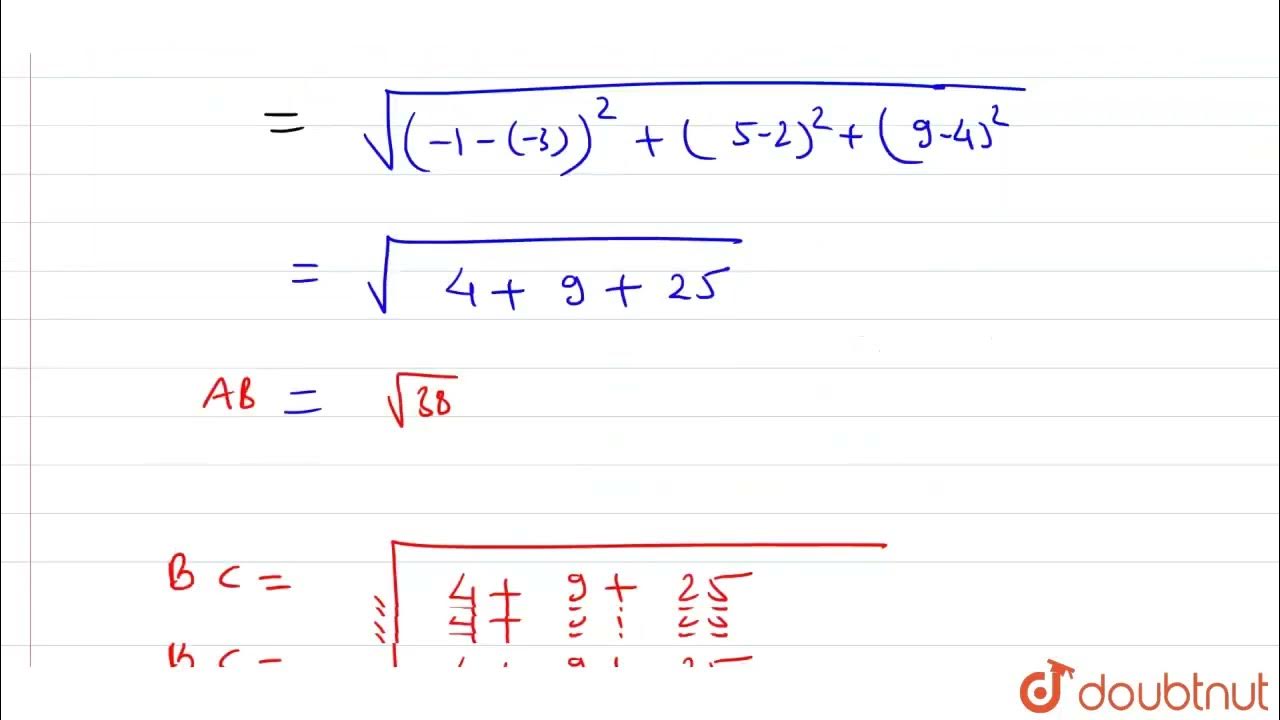 = √(-1-(-3))² + (5-2)² + (9-4)²
= √4 + 9 + 25
AB = √38
BC = √4 + 9 + 25
doubtnut